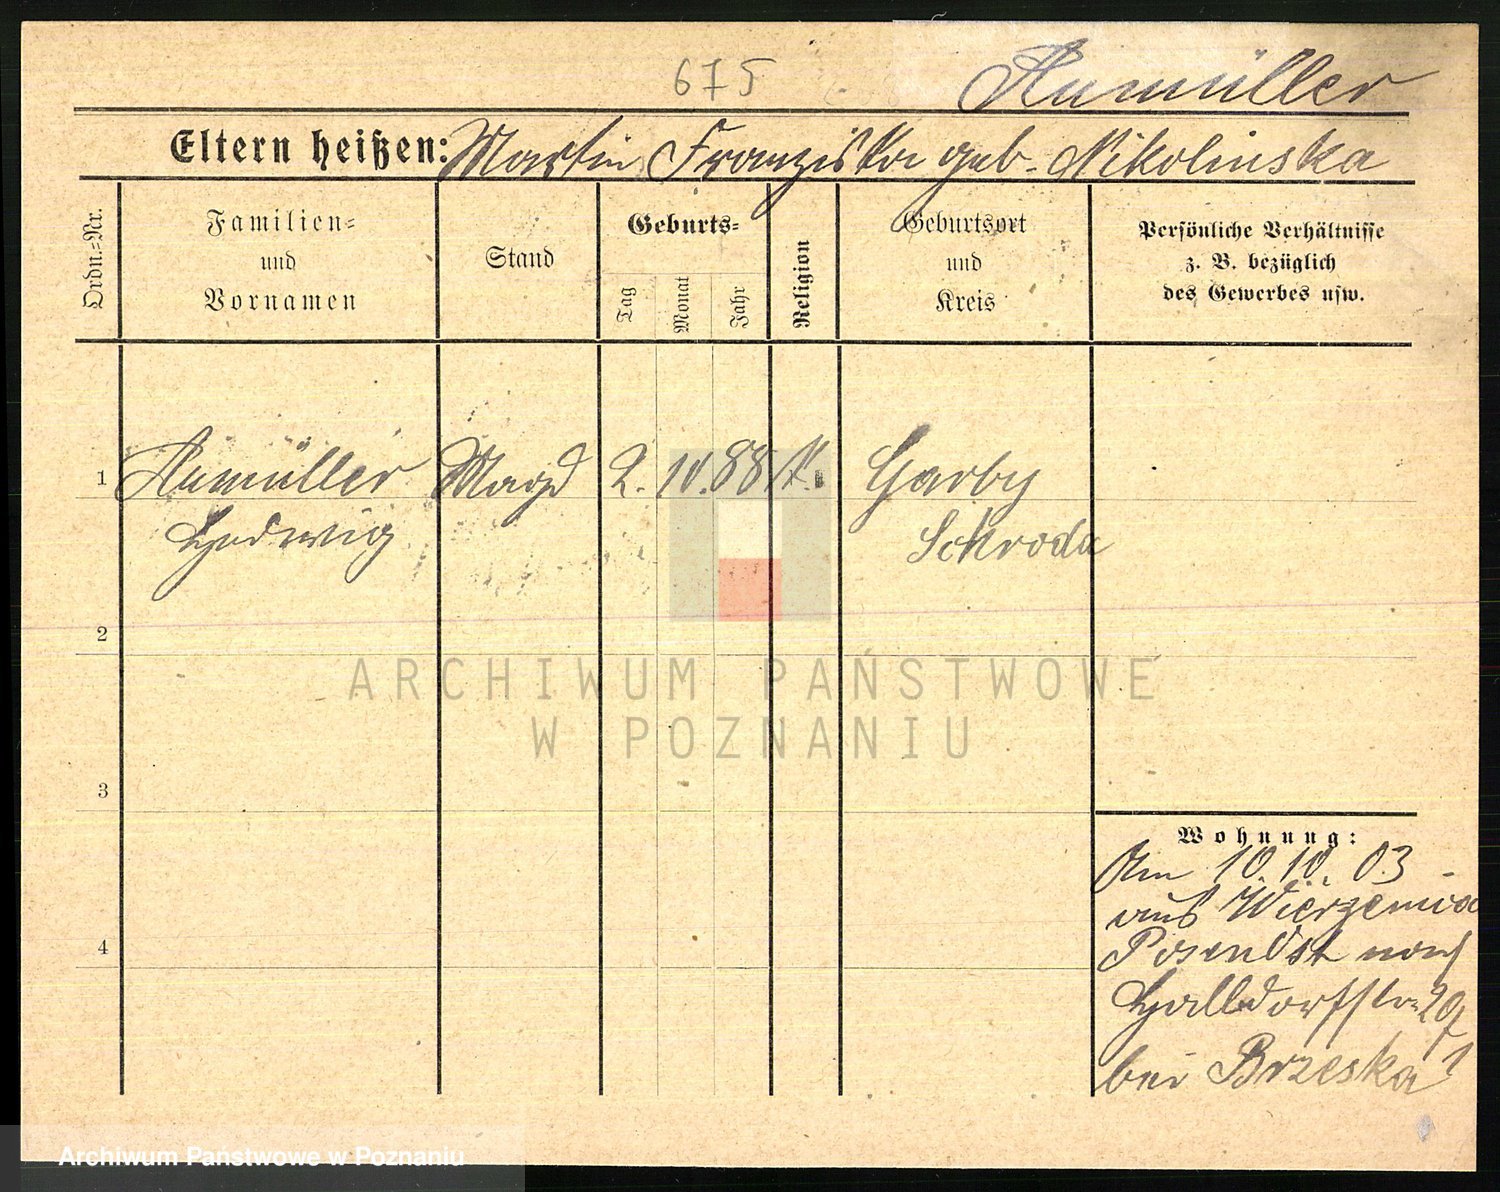 675
Aumüller
Eltern heißen: Martin Franziska geb. Nikolinska
Ordn.=Nr.
Familien=
und
Vornamen
Stand
Geburts=
Tag
Monat
Jahr
Religion
Geburtsort
und
Kreis
Persönliche Verhältnisse
z. B. bezüglich
des Gewerbes usw.
1 Aumüller Magd 2. 10. 88 K. Garby
Hedwig Schroda
2
3
4
Wohnung:
Am 10.10.03
aus Wierzenica
Posen Ost nach
Halldorfstr. 29
bei Brzeska
ARCHIWUM PAŃSTWOWE
W POZNANIU
Archiwum Państwowe w Poznaniu